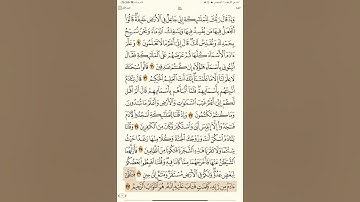 وَإِذْ قَالَ رَبُّكَ لِلْمَلَٰٓئِكَةِ إِنِّى جَاعِلٌ فِى ٱلْأَرْضِ خَلِيفَةً ۖ قَالُوٓا۟
أَتَجْعَلُ فِيهَا مَن يُفْسِدُ فِيهَا وَيَسْفِكُ ٱلدِّمَآءَ وَنَحْنُ نُسَبِّحُ
بِحَمْدِكَ وَنُقَدِّسُ لَكَ ۖ قَالَ إِنِّىٓ أَعْلَمُ مَا لَا تَعْلَمُونَ ٣٠ وَعَلَّمَ
ءَادَمَ ٱلْأَسْمَآءَ كُلَّهَا ثُمَّ عَرَضَهُمْ عَلَى ٱلْمَلَٰٓئِكَةِ فَقَالَ
أَنۢبِـُٔونِى بِأَسْمَآءِ هَٰٓؤُلَآءِ إِن كُنتُمْ صَٰدِقِينَ ٣١ قَالُوا۟ سُبْحَٰنَكَ
لَا عِلْمَ لَنَآ إِلَّا مَا عَلَّمْتَنَآ ۖ إِنَّكَ أَنتَ ٱلْعَلِيمُ ٱلْحَكِيمُ ٣٢ قَالَ يَٰٓـَٔادَمُ
أَنۢبِئْهُم بِأَسْمَآئِهِمْ ۖ فَلَمَّآ أَنۢبَأَهُم بِأَسْمَآئِهِمْ قَالَ أَلَمْ أَقُل
لَّكُمْ إِنِّىٓ أَعْلَمُ غَيْبَ ٱلسَّمَٰوَٰتِ وَٱلْأَرْضِ وَأَعْلَمُ مَا تُبْدُونَ
وَمَا كُنتُمْ تَكْتُمُونَ ٣٣ وَإِذْ قُلْنَا لِلْمَلَٰٓئِكَةِ ٱسْجُدُوا۟ لِـَٔادَمَ
فَسَجَدُوٓا۟ إِلَّآ إِبْلِيسَ أَبَىٰ وَٱسْتَكْبَرَ وَكَانَ مِنَ ٱلْكَٰفِرِينَ ٣٤
وَقُلْنَا يَٰٓـَٔادَمُ ٱسْكُنْ أَنتَ وَزَوْجُكَ ٱلْجَنَّةَ وَكُلَا مِنْهَا رَغَدًا حَيْثُ
شِئْتُمَا وَلَا تَقْرَبَا هَٰذِهِ ٱلشَّجَرَةَ فَتَكُونَا مِنَ ٱلظَّٰلِمِينَ ٣٥ فَأَزَلَّهُمَا
ٱلشَّيْطَٰنُ عَنْهَا فَأَخْرَجَهُمَا مِمَّا كَانَا فِيهِ ۖ وَقُلْنَا ٱهْبِطُوا۟ بَعْضُكُمْ
لِبَعْضٍ عَدُوٌّ ۖ وَلَكُمْ فِى ٱلْأَرْضِ مُسْتَقَرٌّ وَمَتَٰعٌ إِلَىٰ حِينٍ ٣٦ فَتَلَقَّىٰٓ
ءَادَمُ مِن رَّبِّهِۦ كَلِمَٰتٍ فَتَابَ عَلَيْهِ ۚ إِنَّهُۥ هُوَ ٱلتَّوَّابُ ٱلرَّحِيمُ ٣٧